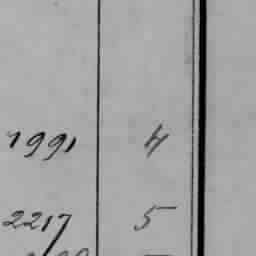 1991 4
2217 5